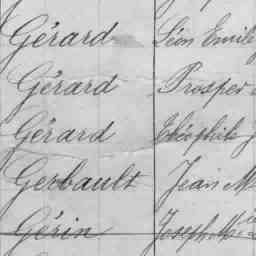 Gérard Léon Emile
Gérard Prosper
Gérard Théophile J
Gerbault Jean M
Gérin Joseph M